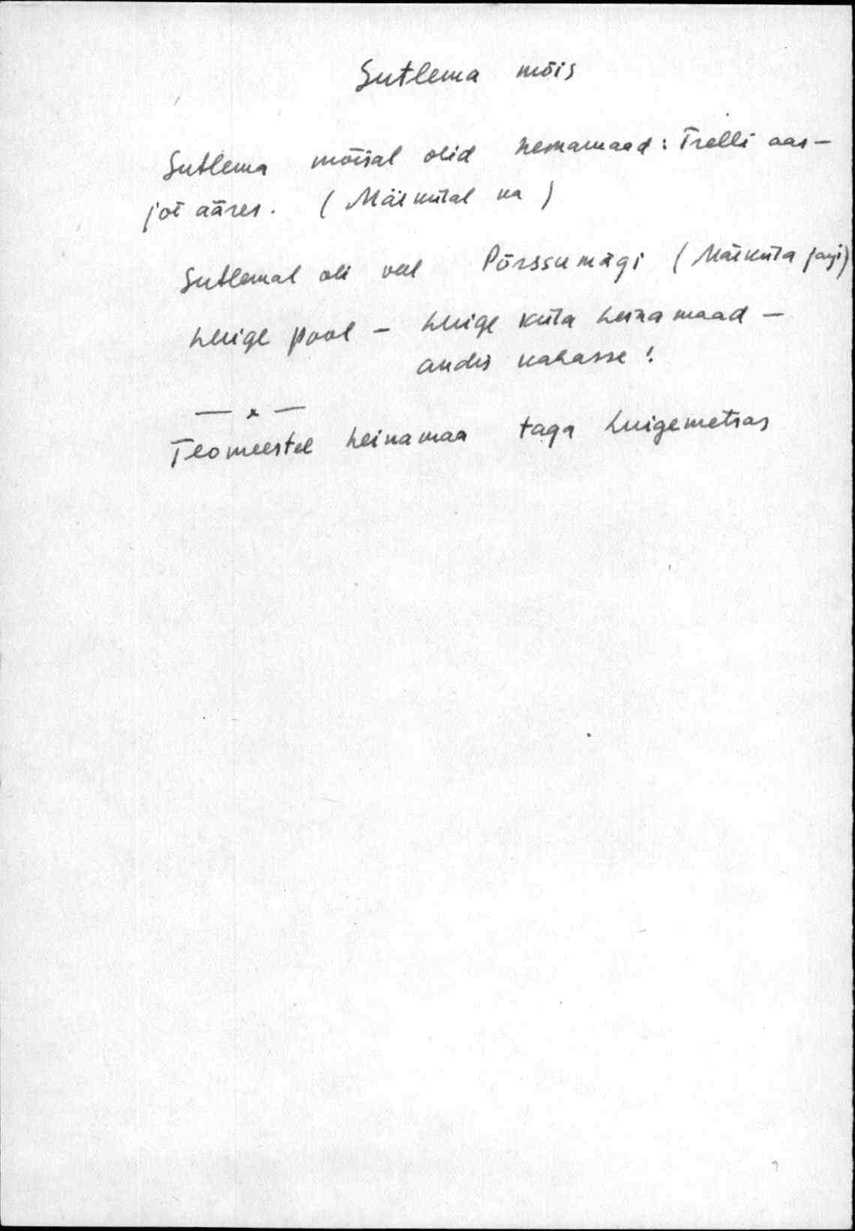 Sutlema mõis
Sutlema mõisal olid heinamaad: Trelli aas-
jõe ääres. ( Mäekülal ka )
Sutlemal oli veel Põrssumägi (Mäeküla järgi)
Luige pool - Luige küla heinamaad -
andis kahasse!
— x —
Teomeestel heinamaa taga Luigemetsas